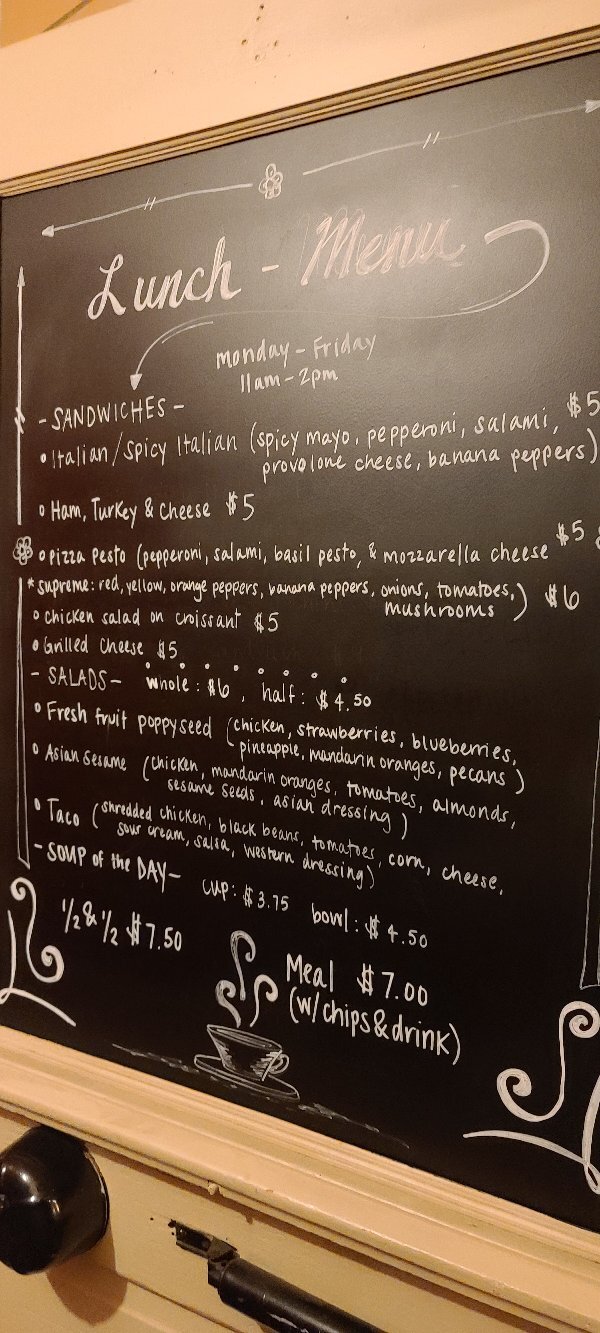 Lunch - Menu
monday - Friday
11am - 2pm
- SANDWICHES -
• Italian/Spicy Italian (spicy mayo, pepperoni, salami, $5
provolone cheese, banana peppers)
• Ham, Turkey & Cheese $5
• Pizza Pesto (pepperoni, salami, basil pesto, & mozzarella cheese $5
* supreme: red, yellow, orange peppers, banana peppers, onions, tomatoes,
mushrooms) $6
• Chicken salad on croissant $5
• Grilled Cheese $5
- SALADS - whole: $6, half: $4.50
• Fresh fruit poppyseed (chicken, strawberries, blueberries,
pineapple, mandarin oranges, pecans)
• Asian Sesame (chicken, mandarin oranges, tomatoes, almonds,
sesame seeds, asian dressing)
• Taco (shredded chicken, black beans, tomatoes, corn, cheese,
sour cream, salsa, western dressing)
- SOUP of the DAY - cup: $3.75 bowl: $4.50
1/2 & 1/2 $7.50
Meal $7.00
(w/chips & drink)